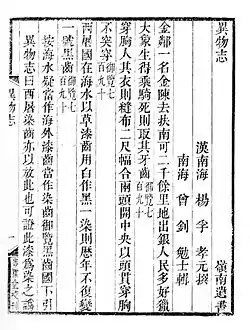 異物志
嶺南遺書
漢南海 楊孚 孝元撰
南海 曾釗 勉士輯
金鄰一名金陳去扶南可二千餘里地出銀人民多好獵
大象生得乘騎死則取其牙齒御覽七百九十
穿胸人其衣則縫布二尺幅合兩頭開中央以頭貫穿胸
不突穿御覽七百九十
西屠國在海水以草漆齒用白作黑一染則歷年不復變
一號黑齒御覽七百九十
按海水疑當作海外漆齒當作染齒御覽黑齒國下引
異物志曰西屠染齒亦以放此也可證此漆為染之譌
異物志
一